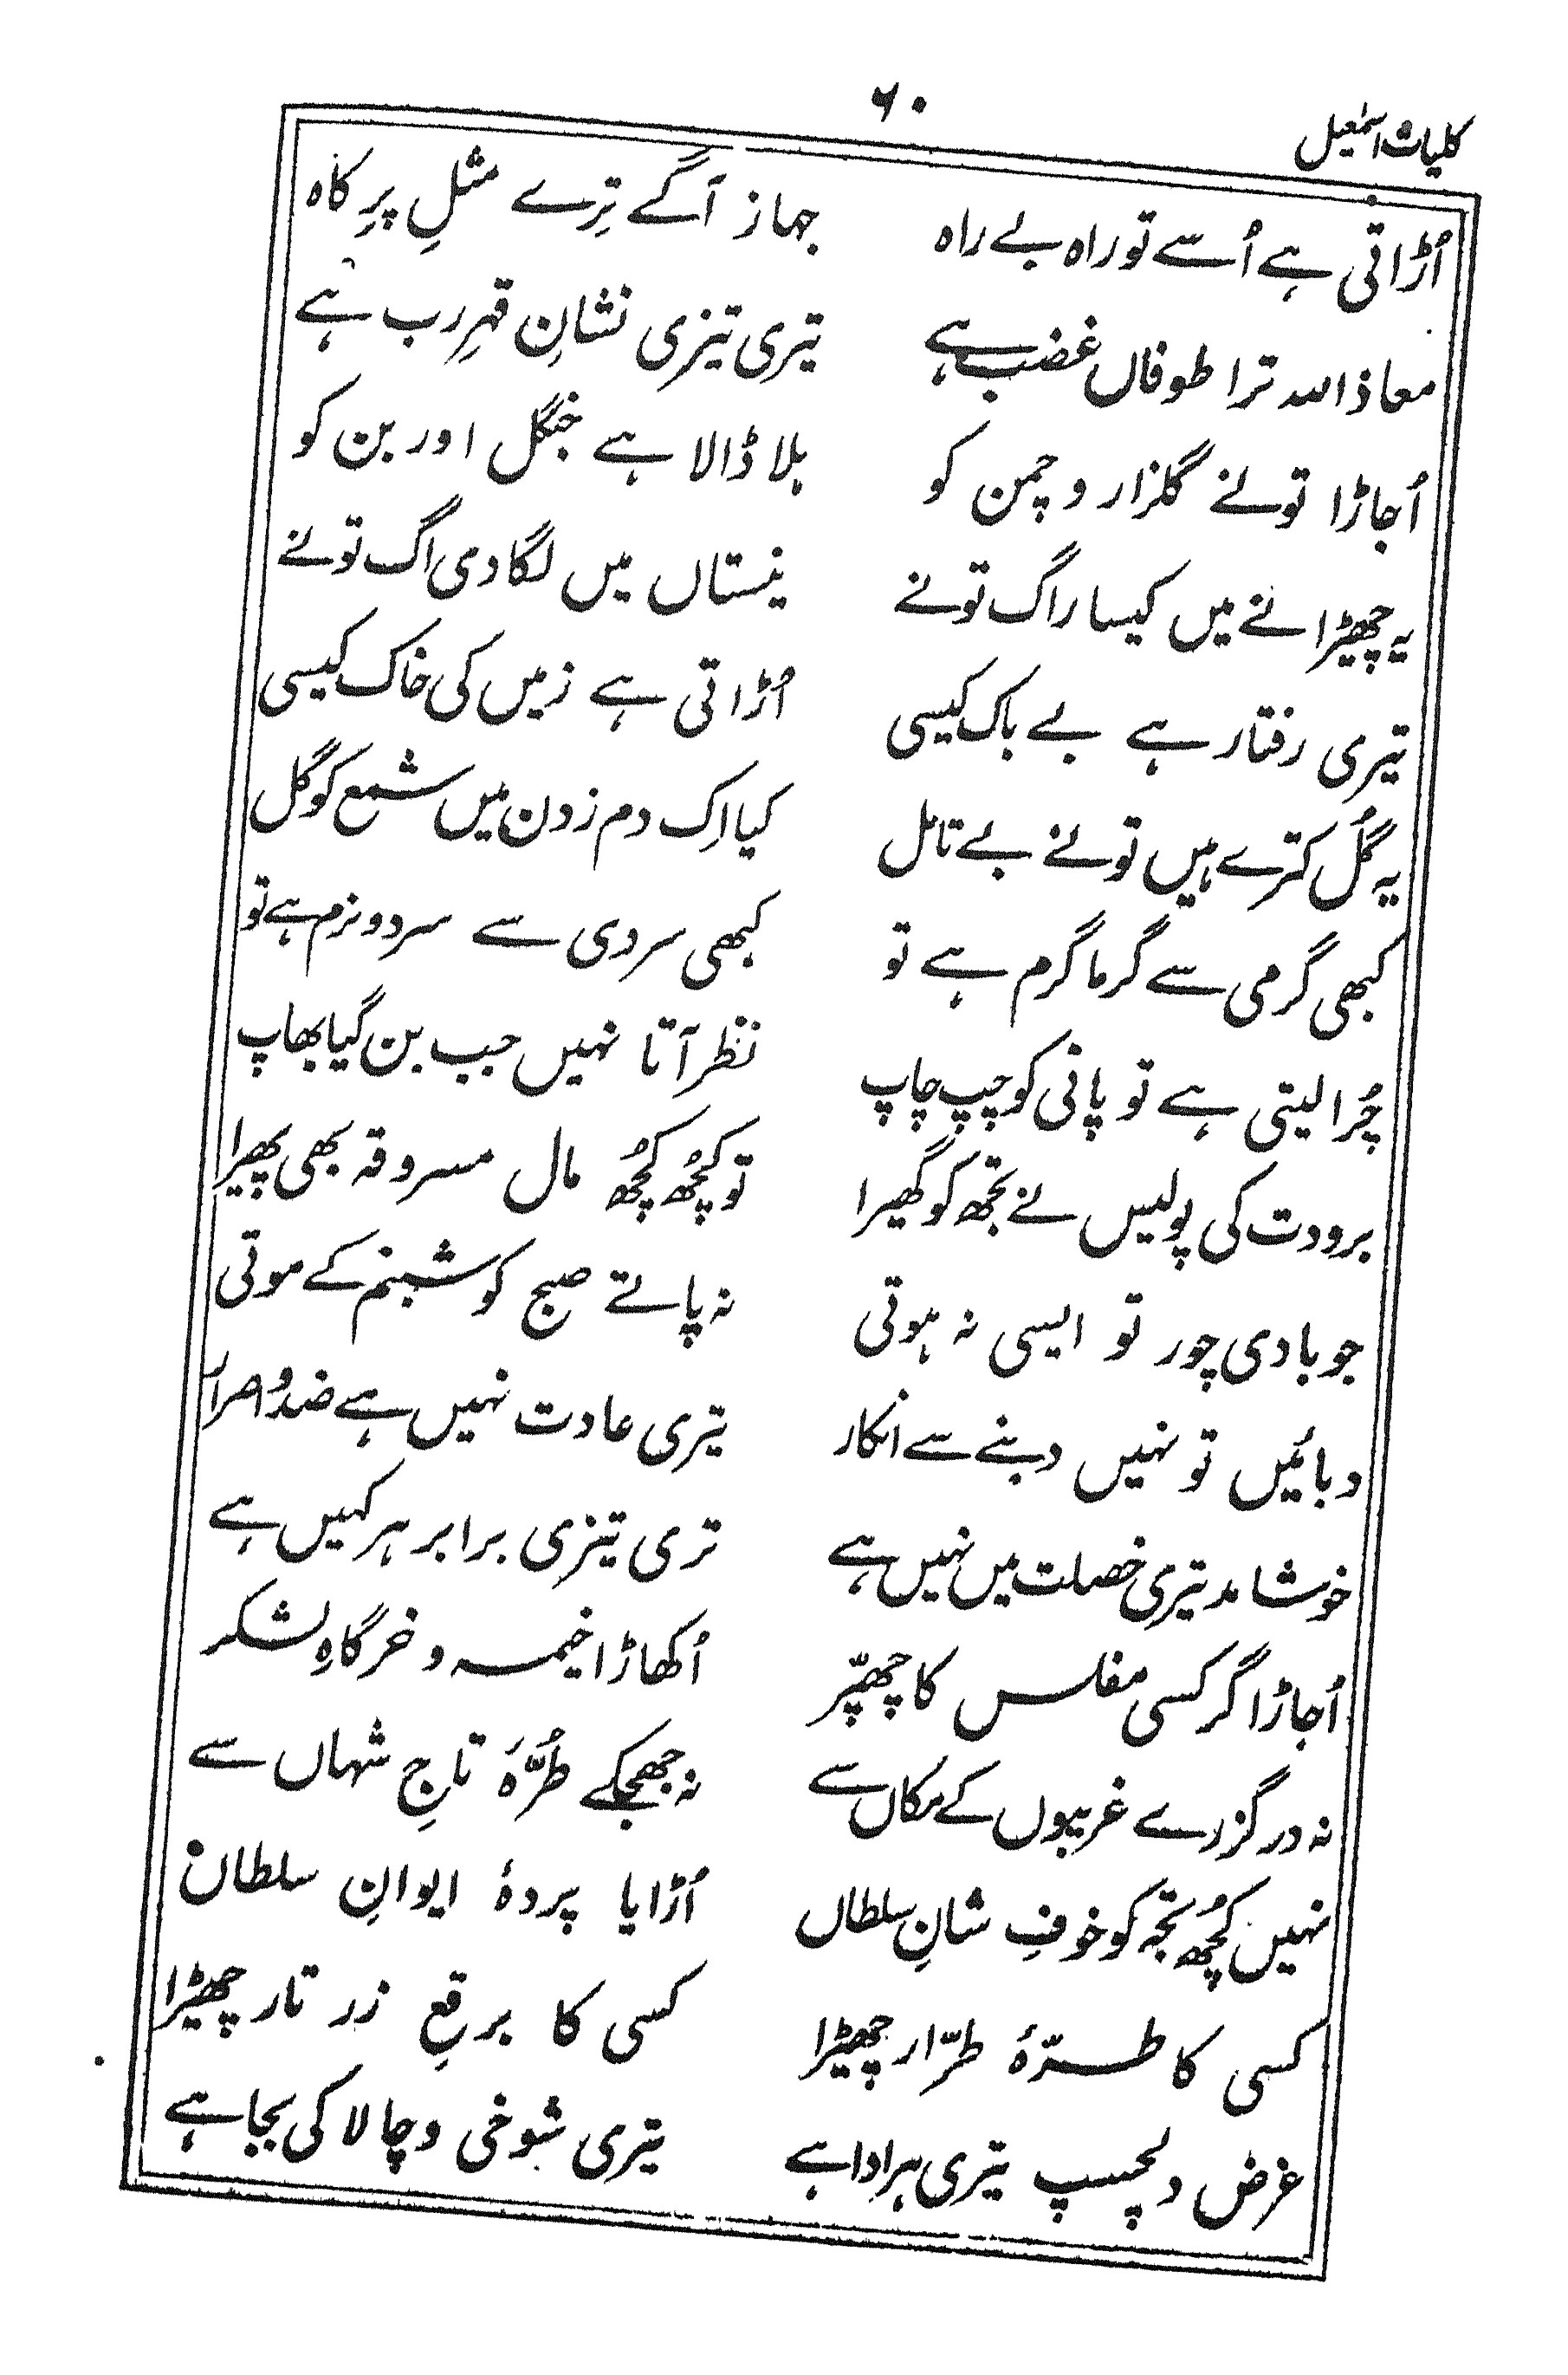 کلیات اسمٰعیل
۶۰
اُڑاتی ہے اُسے تو راہ بے راہ جہاز آگے تِرے مثلِ پرِ کاہ
معاذ اللہ ترا طوفاں غضب ہے تیری تیزی نشانِ قہرِ رب ہے
اُجاڑا تونے گلزار و چمن کو ہلا ڈالا ہے جنگل اور بن کو
یہ چھیڑا نے میں کیسا راگ تونے نیستاں میں لگا دی آگ تونے
تیری رفتار ہے بے باک کیسی اُڑاتی ہے زمیں کی خاک کیسی
یہ گُل کترے ہیں تونے بے تامل کیا اِک دم زدن میں شمع کو گل
کبھی گرمی سے گرما گرم ہے تو کبھی سردی سے سرد و نرم ہے تو
چُرا لیتی ہے تو پانی کو چپ چاپ نظر آتا نہیں جب بن گیا بھاپ
برودت کی پولیس نے تجھ کو گھیرا تو کچُھ کچُھ مال مسروقہ بھی پھیرا
جو بادی چور تو ایسی نہ ہوتی نہ پاتے صبح کو شبنم کے موتی
دبائیں تو نہیں دبنے سے انکار تیری عادت نہیں ہے ضد و اصرار
خوشامد تیری خصلت میں نہیں ہے تری تیزی برابر ہر کہیں ہے
اُجاڑا گر کسی مفلس کا چھپّر اُکھاڑا خیمہ و خرگاہِ لشکر
نہ در گزرے غریبوں کے مکاں سے نہ جھجکے طُرّۂ تاجِ شہاں سے
نہیں کچُھ تجھ کو خوفِ شانِ سلطاں اُڑایا پردۂ ایوانِ سلطان
کسی کا طرّۂ طرّار چھیڑا کسی کا برقعِ زر تار چھیڑا
غرض دلچسپ تیری ہر ادا ہے تیری شوخی و چالاکی بجا ہے